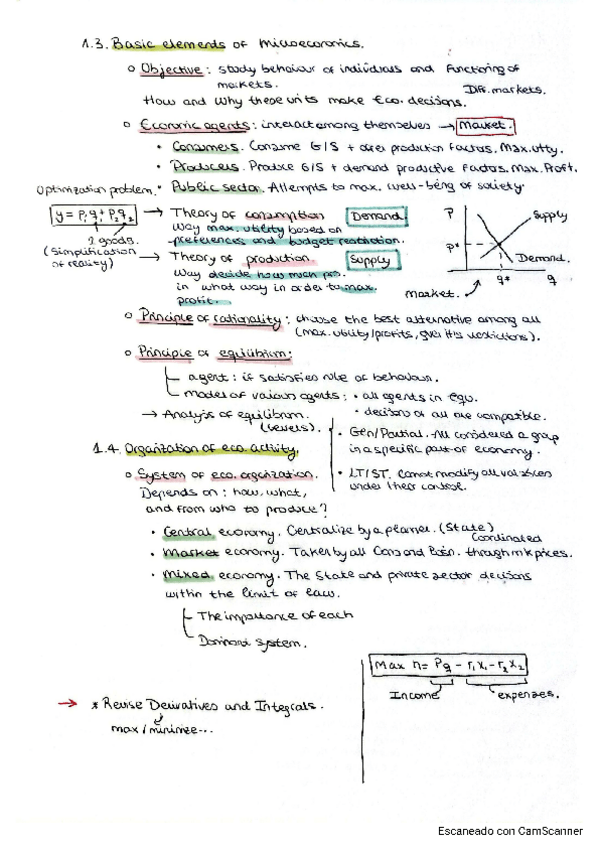 1.3. Basic elements of microeconomics.
o Objective: study behaviour of individuals and functioning of markets.
Dif. markets.
How and why these units make Eco. decisions.
o Economic agents: interact among themselves → Market.
• Consumers. Consume G/S + offer production factors. Max. utty.
• Producers. Produce G/S + demand productive factors. Max. Profit.
Optimization problem.
• Public sector. Attempts to max. well-being of society
y = P₁q₁ + P₂q₂
2 goods.
(Simplification of reality)
→ Theory of consumption Demand
Way max. utility based on
preferences and budget restriction.
→ Theory of production. Supply
Way decide how much pro.
in what way in order to max.
profit.
P
Supply
P*
Demand.
q*
q
Market.
o Principle of rationality: choose the best alternative among all
(max. utility/profits, given its restrictions).
o Principle of equilibrium:
agent: if satisfies rule of behaviour.
model of various agents: • all agents in equ.
• decisions of all are compatible.
→ Analysis of equilibrium.
(Levels).
• Gen/Partial. All considered a group
in a specific part of economy.
• LT/ST. Cannot modify all variables
under their control.
1.4. Organization of eco. activity.
o System of eco. organization.
Depends on: how, what,
and from who to produce?
• Central economy. Centralize by a planner. (State)
Coordinated
• Market economy. Taken by all Cons and Busin. through mk prices.
• Mixed economy. The State and private sector decisions
within the limit of law.
The importance of each
Dominant system.
Max π = Pq - r₁x₁ - r₂x₂
Income expenses.
→ * Revise Derivatives and Integrals.
max/minimize...
Escaneado con CamScanner